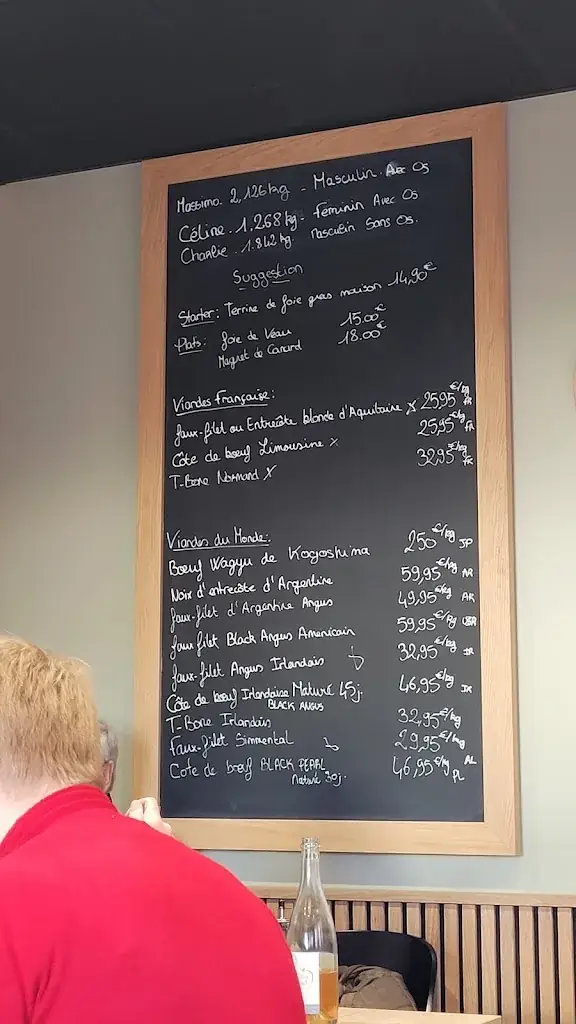 Massimo. 2,126kg - Masculin. Avec Os
Céline. 1,268kg - Féminin Avec Os
Charlie. 1.842kg. Masculin Sans Os.
Suggestion
Starter: Terrine de foie gras maison 14,90€
Plats: foie de Veau 15.00€
Magret de Canard 18.00€
Viandes Française:
faux-filet ou Entrecôte blonde d'Aquitaine X 25,95 €/kg FR
Côte de boeuf Limousine x 25,95 €/kg FR
T-Bone Normand X 32,95 €/kg FR
Viandes du Monde:
Boeuf Wagyu de Kogoshima 250 €/kg JP
Noix d'entrecôte d'Argentine 59,95 €/kg AR
faux-filet d'Argentine Angus 49,95 €/kg AR
faux filet Black Angus Americain 59,95 €/kg USA
faux-filet Angus Irlandais 32,95 €/kg IR
Côte de boeuf Irlandaise Maturé 45j. 46,95 €/kg IR
BLACK ANGUS
T-Bone Irlandais 32,95 €/kg
Faux-filet Simmental 29,95 €/kg AL
Cote de boeuf BLACK PEARL 46,95 €/kg PL
Maturé 30j.